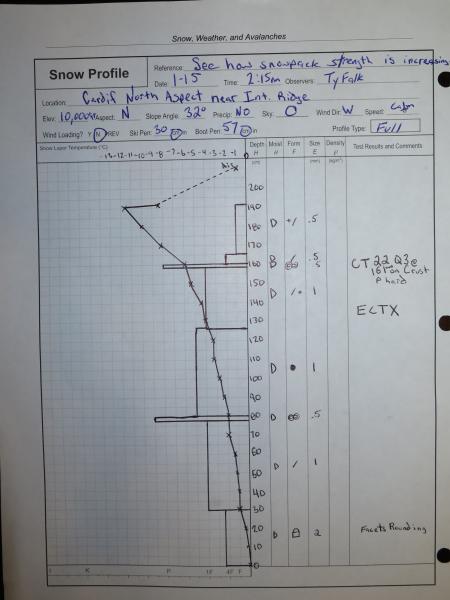 Snow, Weather, and Avalanches
Snow Profile
Reference: See how snowpack strength is increasing
Date: 1-15 Time: 2:15pm Observers: Ty Falk
Location: Cardiff North Aspect near Int. Ridge
Elev: 10,000ft Aspect: N Slope Angle: 32° Precip: NO Sky: O Wind Dir: W Speed: calm
Wind Loading? Y N PREV Ski Pen: 30 cm in Boot Pen: 57 cm in Profile Type: Full
Snow Layer Temperature (°C) Depth Moist Form Size Density Test Results and Comments
-13 -12 -11 -10 -9 -8 -7 -6 -5 -4 -3 -2 -1 0 H θ F E ρ
(cm) (mm) (kg/m³)
Air
200
190
180 D +/ .5
170
160 B / .5 CT 22 Q3 @
.5 161 on Crust
150 P hard
140 D / • 1
130 ECTX
120
110
100 D • 1
90
80 D .5
70
60
50 D / 1
40
30
20 D 2 Facets Rounding
10
0
I K P 1F 4F F